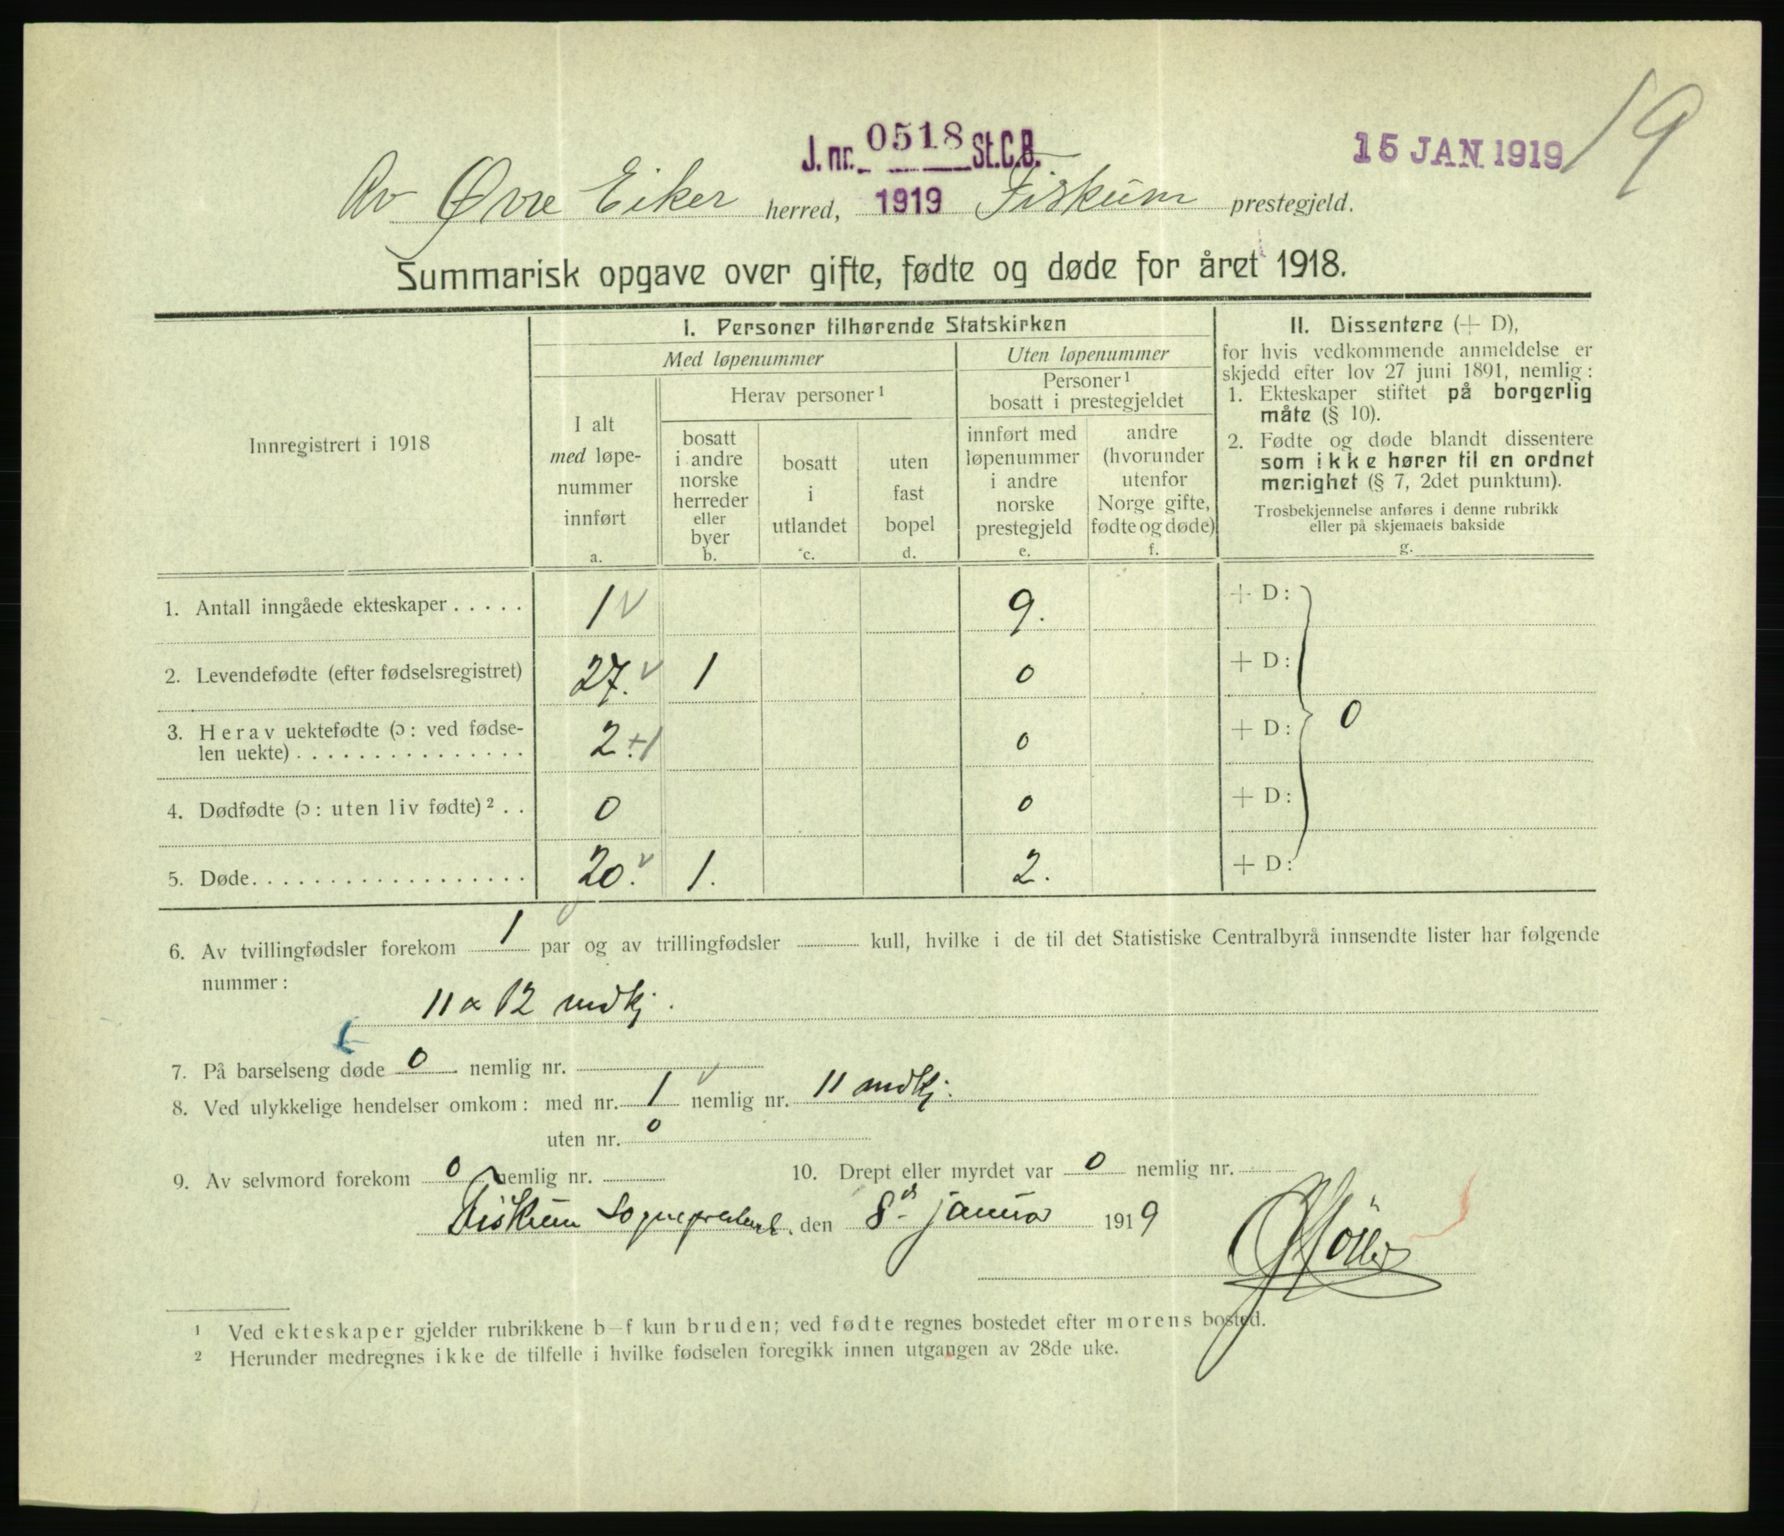 19
J. nr. 0518 St.C.B.
15 JAN 1919
Av Øvre Eiker herred, 1919 Fiskum prestegjeld.
Summarisk opgave over gifte, fødte og døde for året 1918.
Innregistrert i 1918
I. Personer tilhørende Statskirken
Med løpenummer
Uten løpenummer
I alt
med løpe-
nummer
innført
a.
Herav personer¹
bosatt
i andre
norske
herreder
eller
byer
b.
bosatt
i
utlandet
c.
uten
fast
bopel
d.
Personer¹
bosatt i prestegjeldet
innført med
løpenummer
i andre
norske
prestegjeld
e.
andre
(hvorunder
utenfor
Norge gifte,
fødte og døde)
f.
II. Dissentere (+ D),
for hvis vedkommende anmeldelse er
skjedd efter lov 27 juni 1891, nemlig:
1. Ekteskaper stiftet på borgerlig
måte (§ 10).
2. Fødte og døde blandt dissentere
som ikke hører til en ordnet
menighet (§ 7, 2det punktum).
Trosbekjennelse anføres i denne rubrikk
eller på skjemaets bakside
g.
1. Antall inngåede ekteskaper . . . . . 1 9. + D:
2. Levendefødte (efter fødselsregistret) 27. 1 0 + D:
3. Herav uektefødte (ɔ: ved fødse-
len uekte) . . . . . . . . . . . . . . . 2 +1 0 + D: 0
4. Dødfødte (ɔ: uten liv fødte)² . . 0 0 + D:
5. Døde. . . . . . . . . . . . . . . . . . 20. 1. 2. + D:
6. Av tvillingfødsler forekom 1 par og av trillingfødsler kull, hvilke i de til det Statistiske Centralbyrå innsendte lister har følgende
nummer:
11 & 12 mdkj.
7. På barselseng døde 0 nemlig nr.
8. Ved ulykkelige hendelser omkom: med nr. 1 nemlig nr. 11 mdkj.
uten nr. 0
9. Av selvmord forekom 0 nemlig nr. 10. Drept eller myrdet var 0 nemlig nr.
Fiskum Sogneprestemb. den 8de januar 1919
¹ Ved ekteskaper gjelder rubrikkene b–f kun bruden; ved fødte regnes bostedet efter morens bosted.
² Herunder medregnes ikke de tilfelle i hvilke fødselen foregikk innen utgangen av 28de uke.